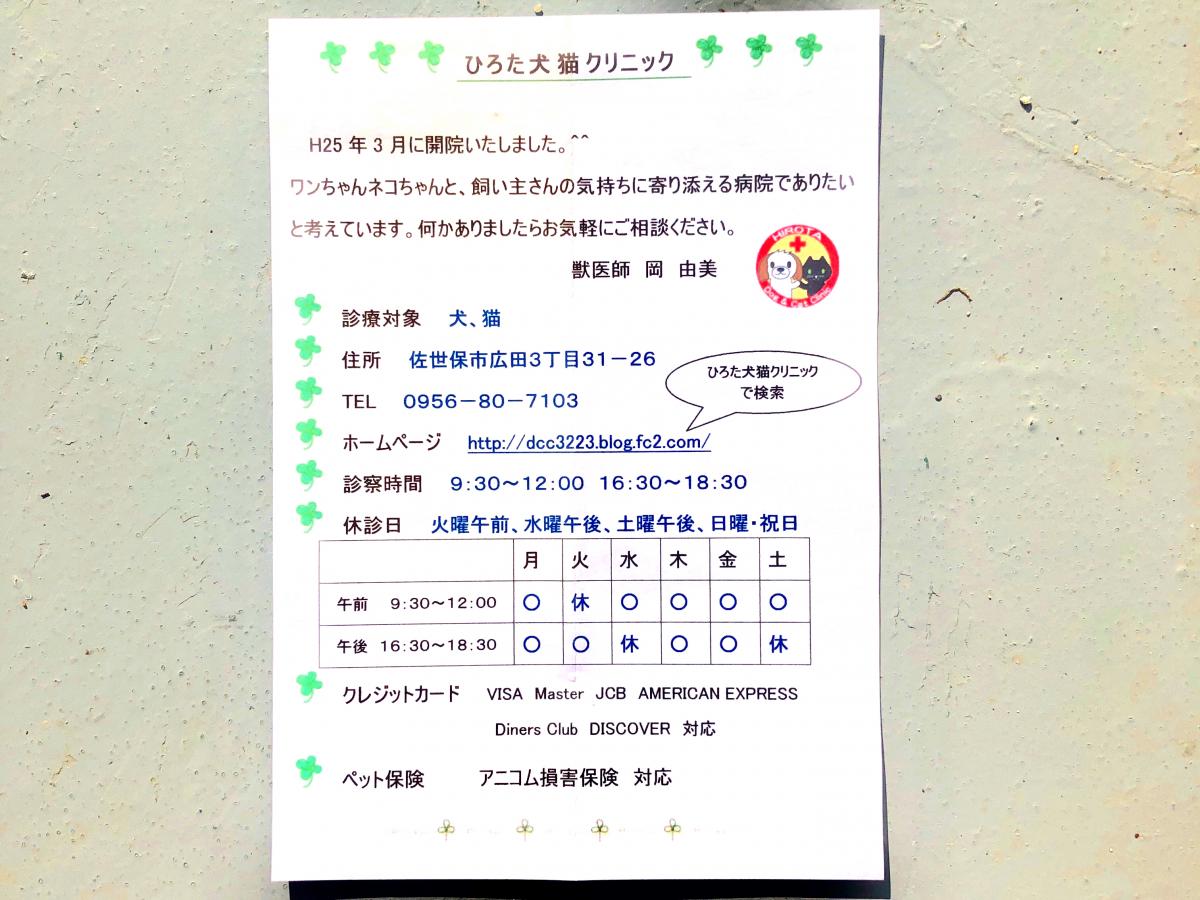 ひろた犬猫クリニック
H25 年 3 月に開院いたしました。^^
ワンちゃんネコちゃんと、飼い主さんの気持ちに寄り添える病院でありたい
と考えています。何かありましたらお気軽にご相談ください。
獣医師 岡 由美
HIROTA
Dog & Cat Clinic
診療対象 犬、猫
住所 佐世保市広田3丁目31－26
ひろた犬猫クリニック
で検索
TEL 0956－80－7103
ホームページ http://dcc3223.blog.fc2.com/
診察時間 9:30～12:00 16:30～18:30
休診日 火曜午前、水曜午後、土曜午後、日曜・祝日
月 火 水 木 金 土
午前 9:30～12:00 〇 休 〇 〇 〇 〇
午後 16:30～18:30 〇 〇 休 〇 〇 休
クレジットカード VISA Master JCB AMERICAN EXPRESS
Diners Club DISCOVER 対応
ペット保険 アニコム損害保険 対応